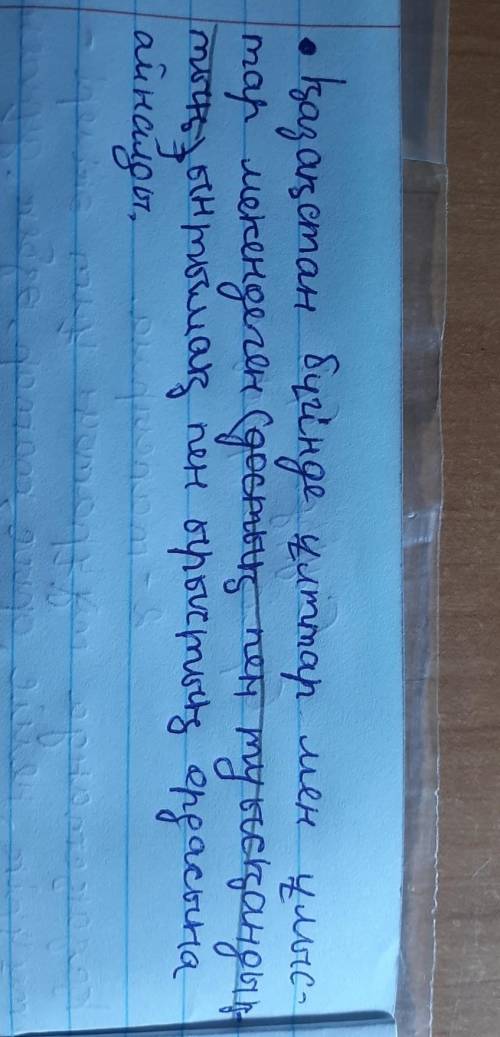 • Қазақстан бүгінде ұлттар мен ұлыс-
тар мекендеген (достық пен туысқандық-
тың), ынтымақ пен ырыстың ордасына
айналды,